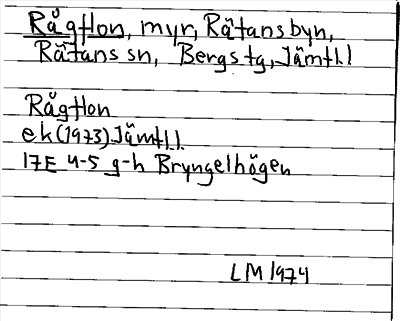 Rågflon, myr, Rätansbyn,
Rätans sn, Bergs tg, Jämtl.l
Rågflon
ek (1973) Jämtl.l.
17E 4-5 g-h Bryngelhögen
LM 1974